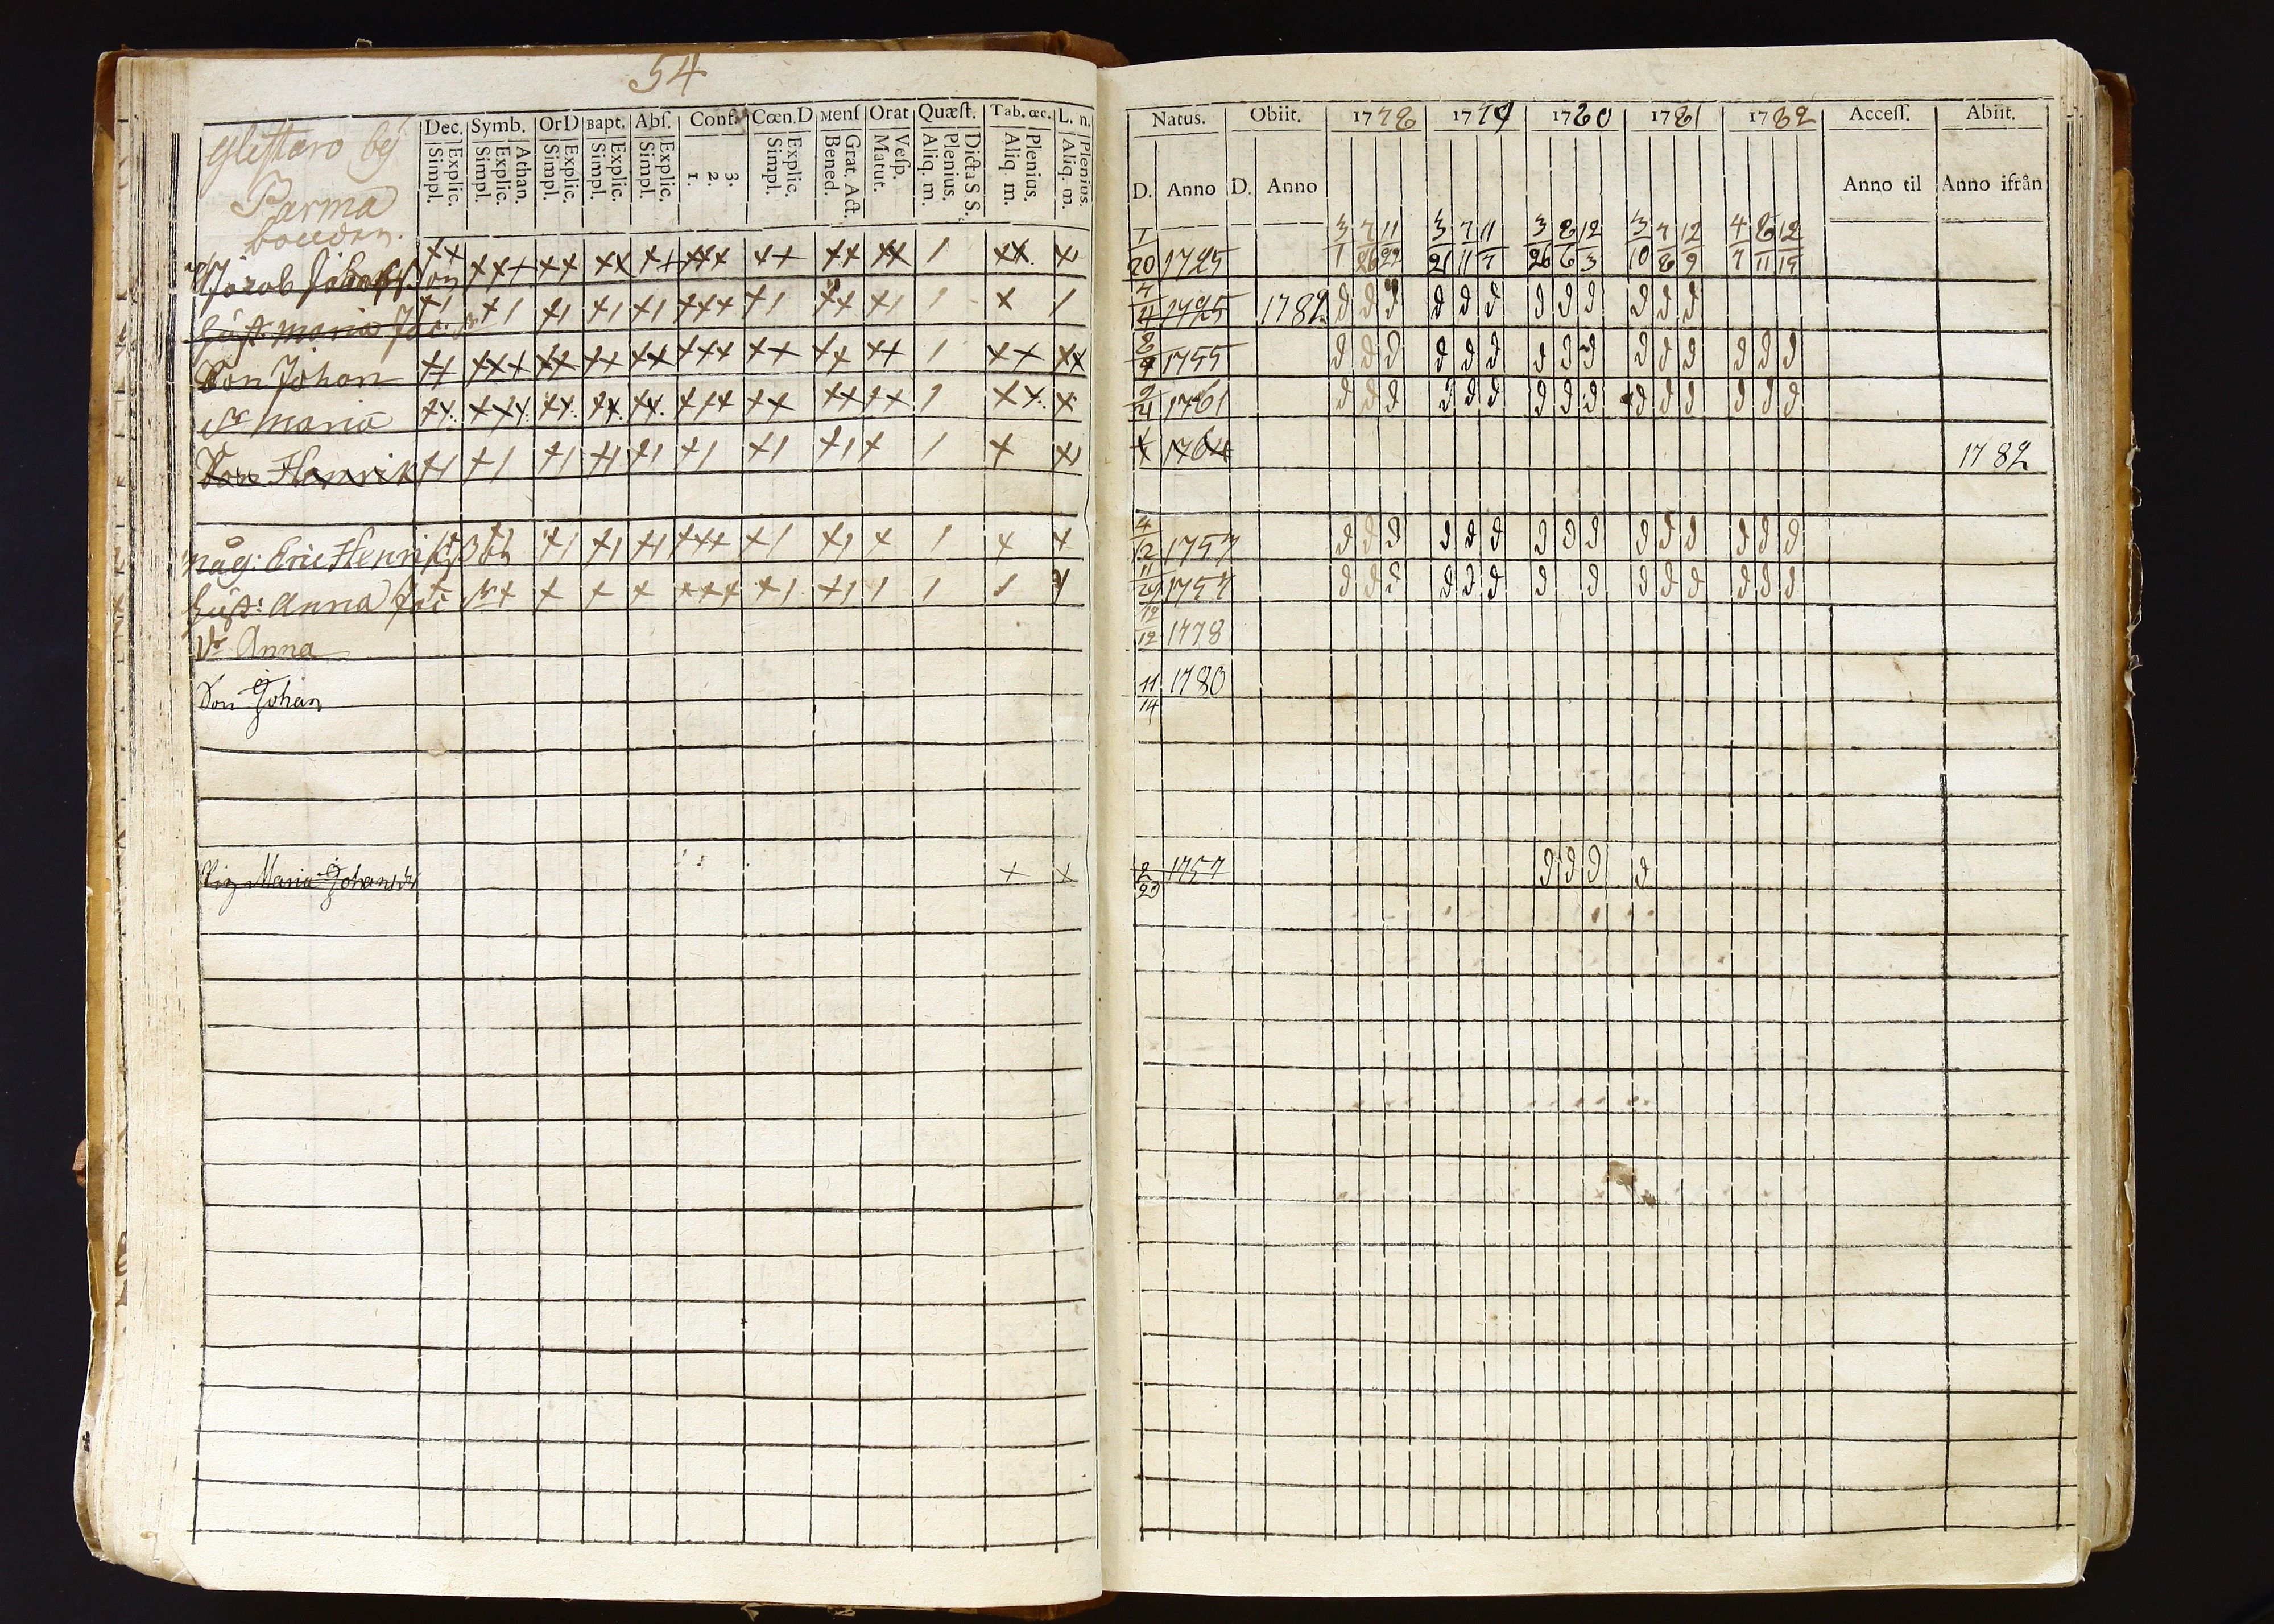 54
Dec. Symb. OrD Bapt. Abſ. Conf. Cœn.D Menſ Orat Quæſt. Tab. œc. L. n.
Explic. Simpl. Athan. Explic. Simpl. Explic. Simpl. Explic. Simpl. Explic. Simpl. 3. 2. 1. Explic. Simpl. Grat. Act. Bened. Veſp. Matut. Dicta S S. Plenius. Aliq. m. Plenius. Aliq. m. Plenius. Aliq. m.
by
Parma
bonden.
Jacob
Hust: Maria Jac: dr
Son Johan
dr Maria
Son Henrik
måg: Eric Henriks
hust: Anna Jac dr
dr Anna
Son Johan
Pig Maria Johansdr
Natus. Obiit. 1778 1779 1780 1781 1782 Acceſſ. Abiit.
D. Anno D. Anno Anno til Anno ifrån
3/1 7/26 11/22 3/21 7/11 11/7 3/26 8/6 12/3 3/10 7/8 12/9 4/7 8/11 12/15
1/20 1725
7/4 1725 1782
8/9 1755
9/4 1761
1764 1782
4/12 1757
11/29 1757
12/12 1778
11/14 1780
2/23 1757